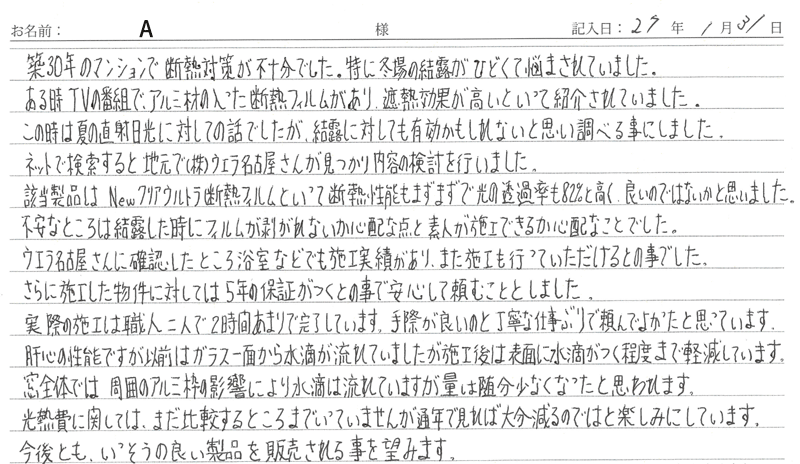 お名前： A 様 記入日：29年 1月31日
築30年のマンションで断熱対策が不十分でした。特に冬場の結露がひどくて悩まされていました。
ある時TVの番組で、アルミ材の入った断熱フィルムがあり、遮熱効果が高いといって紹介されていました。
この時は夏の直射日光に対しての話でしたが、結露に対しても有効かもしれないと思い調べる事にしました。
ネットで検索すると地元で(株)ウエラ名古屋さんが見つかり内容の検討を行いました。
該当製品はNewクリアウルトラ断熱フィルムといって断熱性能もまずまずで光の透過率も82%と高く、良いのではないかと思いました。
不安なところは結露した時にフィルムが剥がれないか心配な点と素人が施工できるか心配なことでした。
ウエラ名古屋さんに確認したところ浴室などでも施工実績があり、また施工も行っていただけるとの事でした。
さらに施工した物件に対しては5年の保証がつくとの事で安心して頼むこととしました。
実際の施工は職人二人で2時間あまりで完了しています。手際が良いのと丁寧な仕事ぶりで頼んでよかったと思っています。
肝心の性能ですが以前はガラス一面から水滴が流れていましたが施工後は表面に水滴がつく程度まで軽減しています。
窓全体では周囲のアルミ枠の影響により水滴は流れていますが量は随分少なくなったと思われます。
光熱費に関しては、まだ比較するところまでいっていませんが通年で見れば大分減るのではと楽しみにしています。
今後とも、いっそうの良い製品を販売される事を望みます。